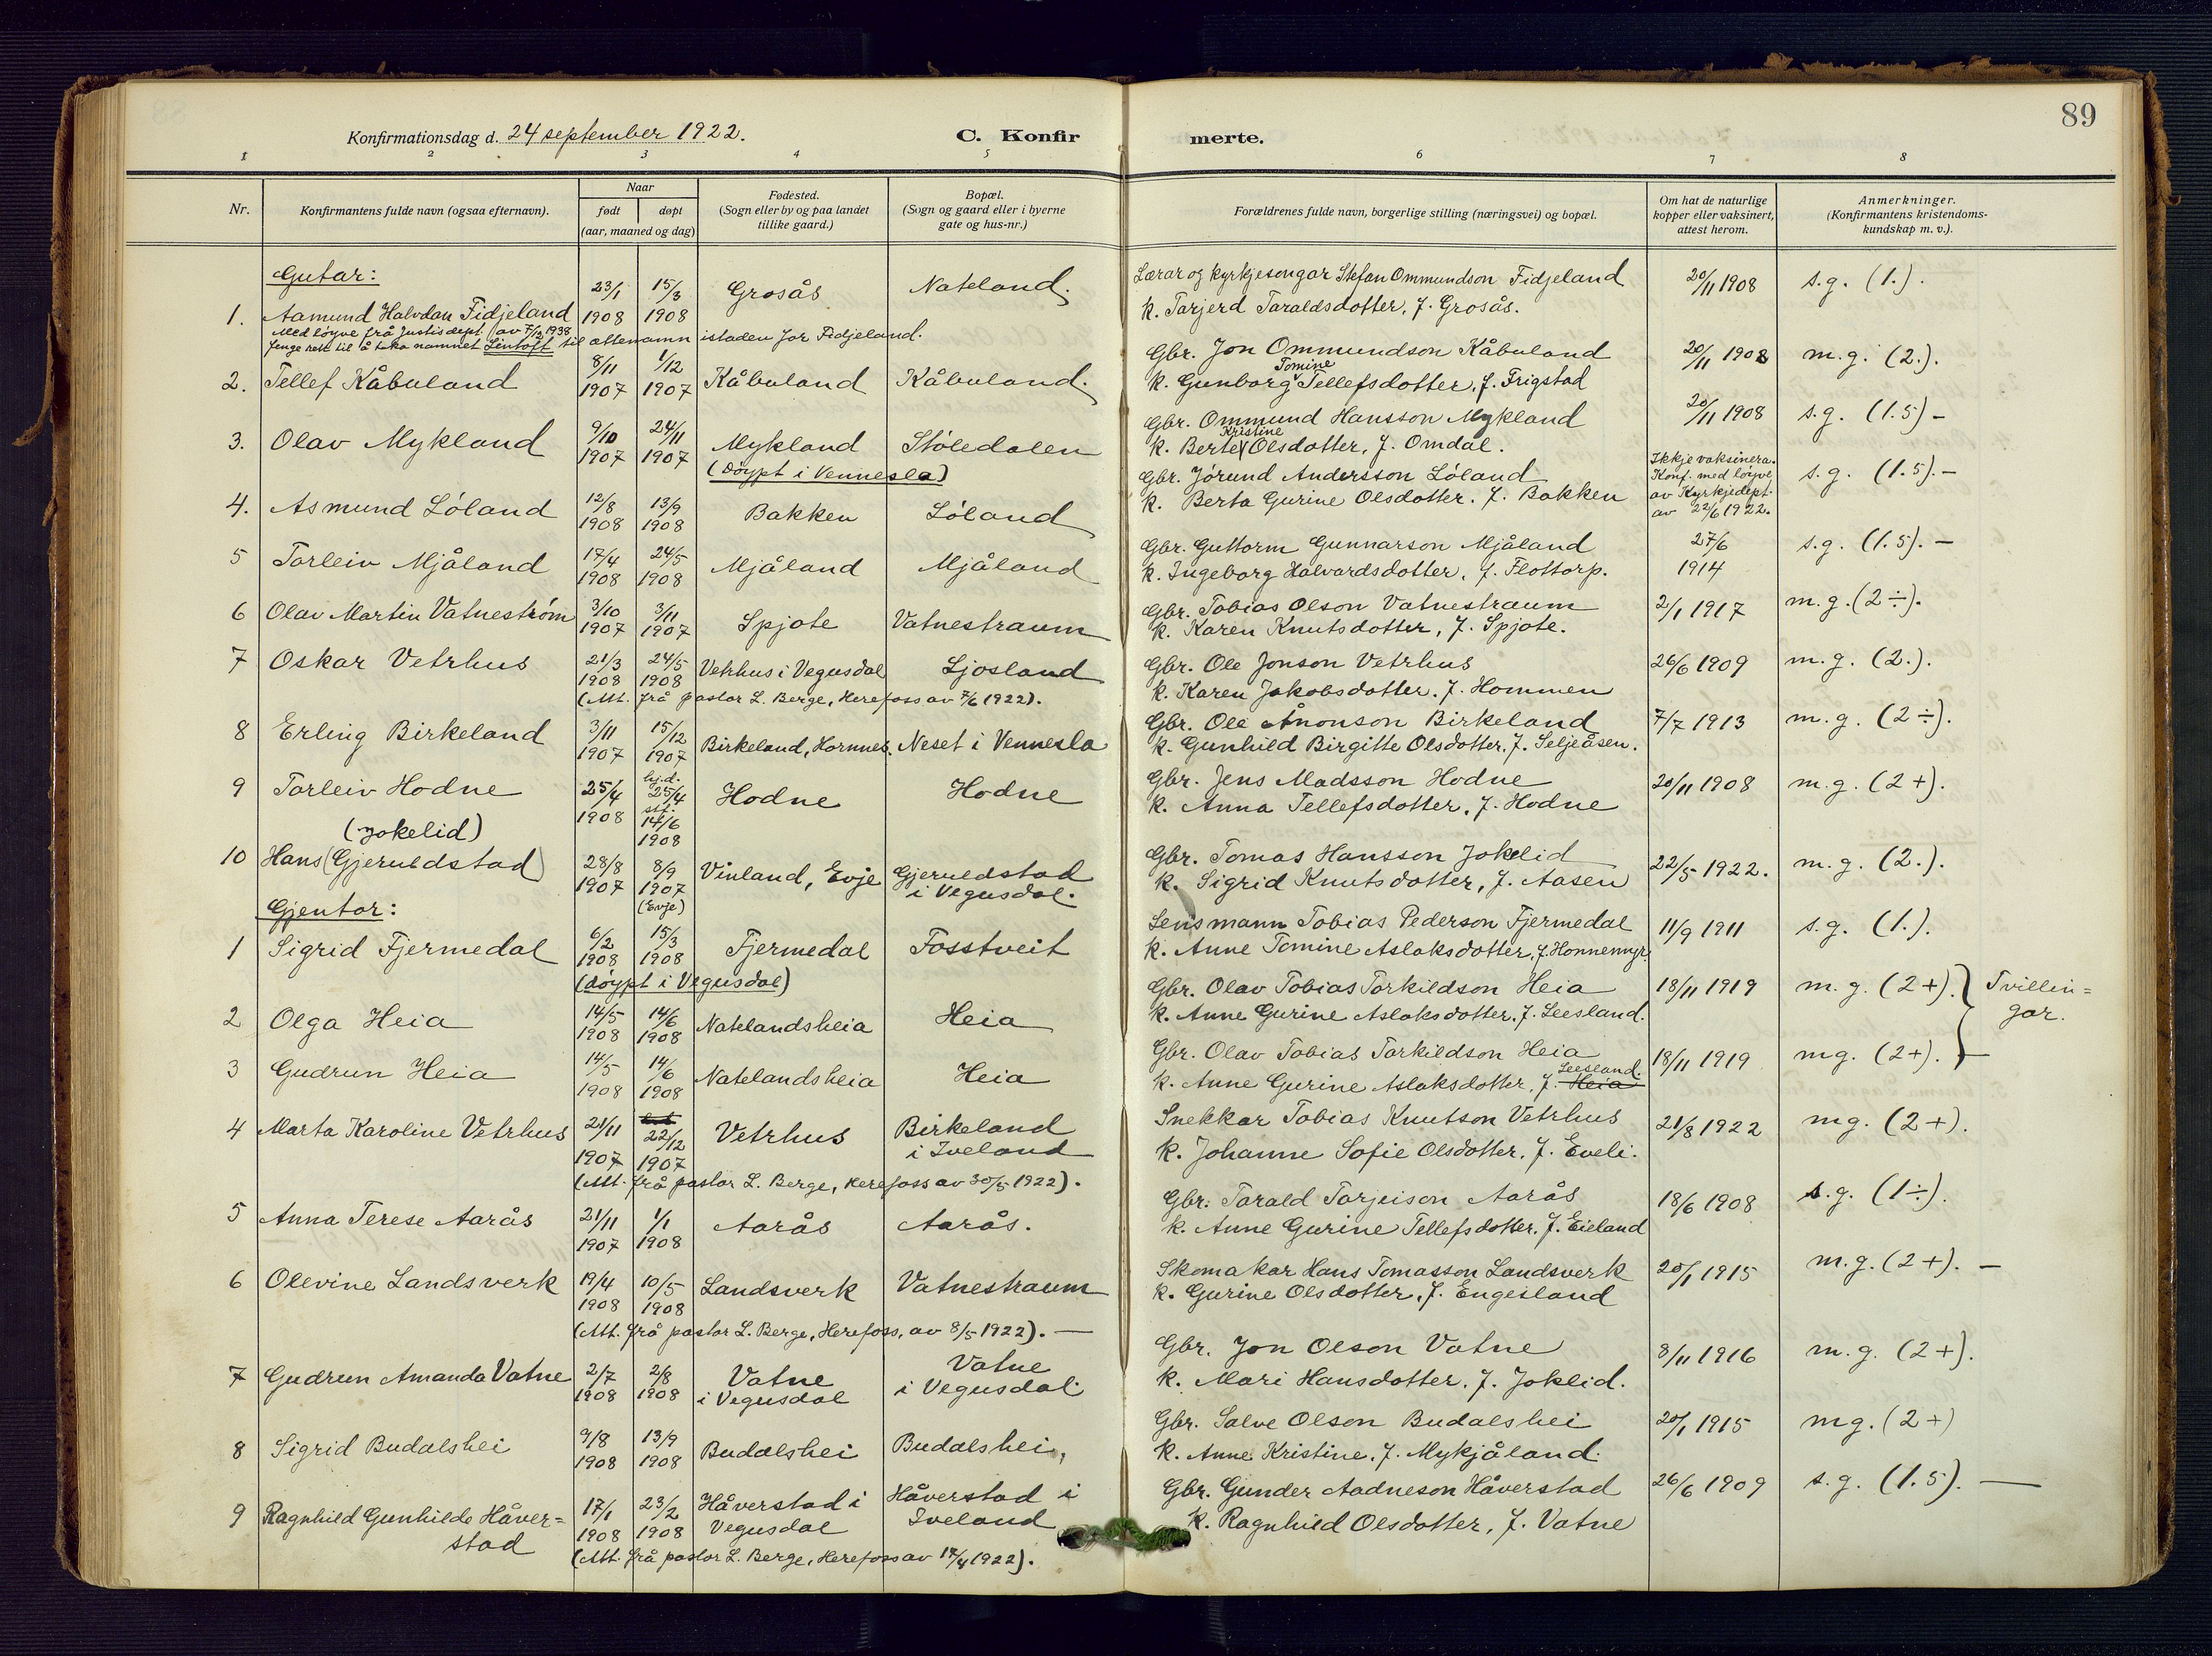 89
Konfirmationsdag d. 24 september 1922. C. Konfir merte.
1 2 3 4 5 6 7 8
Nr. Konfirmantens fulde navn (ogsaa efternavn). Naar født døpt (aar, maaned og dag) Fødested. (Sogn eller by og paa landet tillike gaard.) Bopæl. (Sogn og gaard eller i byerne gate og hus-nr.) Forældrenes fulde navn, borgerlige stilling (næringsvei) og bopæl. Om hat de naturlige kopper eller vaksinert, attest herom. Anmerkninger. (Konfirmantens kristendoms- kundskap m. v.).
Gutar:
1. Aamund Halvdan Fidjeland 23/1 1908 15/3 1908 Grosås Nateland. Lærar og kyrkjesongar Stefan Ommundson Fidjeland 20/11 1908 s.g. (1.).
k. Tarjerd Taraldsdotter, f. Grosås.
Med løyve frå Justisdept. av 7/12 1938
fenge rett til å taka namnet Lintoft til ættenamn istaden for Fidjeland.
2. Tellef Kåbuland 8/11 1907 1/12 1907 Kåbuland Kåbuland. Gbr. Jon Ommundson Kåbuland 20/11 1908 m.g. (2.).
k. Gunborg Tomine Tellefsdotter, f. Frigstad
3. Olav Mykland 9/10 1907 24/11 1907 Mykland Støledalen Gbr. Ommund Hansson Mykland 20/11 1908 s.g. (1.5) -
(døypt i Vennesla) k. Berte Kristine Olsdotter, f. Omdal.
4. Asmund Løland 12/8 1908 13/9 1908 Bakken Løland Gbr. Jørund Andersson Løland Ikkje vaksinera. Konf. med løyve av Kyrkjedept. av 22/6 1922. s.g. (1.5). -
k. Berta Gurine Olsdotter. f. Bakken
5 Torleiv Mjåland 17/4 1908 24/5 1908 Mjåland Mjåland Gbr. Guttorm Gunnarson Mjåland 27/6 1914 s.g. (1.5). -
k. Ingeborg Halvardsdotter, f. Flottorp.
6 Olav Martin Vatnestrøm 3/10 1907 3/11 1907 Spjote Vatnestraum Gbr. Tobias Olson Vatnestraum 2/1 1917 m.g. (2÷).
k. Karen Knutsdotter, f. Spjote.
7 Oskar Vetrhus 21/3 1908 24/5 1908 Vetrhus i Vegusdal Ljosland Gbr. Ole Jonson Vetrhus 26/6 1909 m.g. (2.).
(Att. frå pastor L. Berge, Herefoss av 7/6 1922). k. Karen Jakobsdotter. f. Hommen
8 Erling Birkeland 3/11 1907 15/12 1907 Birkeland, Hornnes. Neset i Vennesla Gbr. Ole Ånonson Birkeland 7/7 1913 m.g. (2÷).
k. Gunhild Birgitte Olsdotter. f. Seljeåsen.
9 Torleiv Hodne 25/4 1908 hj.d. 25/4 st. 14/6 1908 Hodne Hodne Gbr. Jens Madsson Hodne 20/11 1908 m.g. (2+).
k. Anna Tellefsdotter, f. Hodne
(Jokelid)
10 Hans (Gjeruldstad) 28/8 1907 8/9 1907 (Evje) Vinland, Evje Gjeruldstad i Vegusdal. Gbr. Tomas Hansson Jokelid 22/5 1922. m.g. (2.).
k. Sigrid Knutsdotter, f. Aasen
Gjentor:
1 Sigrid Fjermedal 6/2 1908 15/3 1908 Fjermedal Fosstveit Lensmann Tobias Pederson Fjermedal 11/9 1911 s.g. (1.).
(døypt i Vegusdal) k. Anne Tomine Aslaksdotter. f. Honnemyr
2 Olga Heia 14/5 1908 14/6 1908 Natelandsheia Heia Gbr. Olav Tobias Torkildson Heia 18/11 1919 m.g. (2+). Tvillin= gar.
k. Anne Gurine Aslaksdotter. f. Leesland.
3 Gudrun Heia 14/5 1908 14/6 1908 Natelandsheia Heia Gbr. Olav Tobias Torkildson Heia 18/11 1919 mg. (2+).
k. Anne Gurine Aslaksdotter, f. Heia Leesland.
4 Marta Karoline Vetrhus 21/11 1907 22/12 1907 Vetrhus Birkeland i Iveland Snekkar Tobias Knutson Vetrhus 21/8 1922 mg. (2+).
(Att. frå pastor L. Berge, Herefoss av 30/5 1922). k. Johanne Sofie Olsdotter, f. Eveli.
5 Anna Terese Aarås 21/11 1907 1/1 1908 Aarås Aarås. Gbr. Tarald Torjeison Aarås 18/6 1908 s.g. (1÷).
k. Anne Gurine Tellefsdotter. f. Eieland
6 Olevine Landsverk 19/4 1908 10/5 1908 Landsverk Vatnestraum Skomakar Hans Tomasson Landsverk 20/1 1915 m.g. (2+). -
(Att. frå pastor L. Berge, Herefoss, av 8/5 1922). - k. Gurine Olsdotter, f. Engesland
7 Gudrun Amanda Vatne 2/7 1908 2/8 1908 Vatne i Vegusdal Vatne i Vegusdal. Gbr. Jon Olson Vatne 8/11 1916 m.g. (2+).
k. Mari Hansdotter. f. Joklid.
8 Sigrid Budalshei 9/8 1908 13/9 1908 Budalshei Budalshei, Gbr. Salve Olson Budalshei 20/1 1915 mg. (2+)
k. Anne Kristine. f. Mykjåland.
9 Ragnhild Gunhilde Håver= stad 17/1 1908 23/2 1908 Håverstad i Vegusdal Håverstad i Iveland Gbr. Gunder Aadneson Håverstad 26/6 1909 s.g. (1.5). -
(Att. frå pastor L. Berge, Herefoss av 17/4 1922). k. Ragnhild Olsdotter, f. Vatne